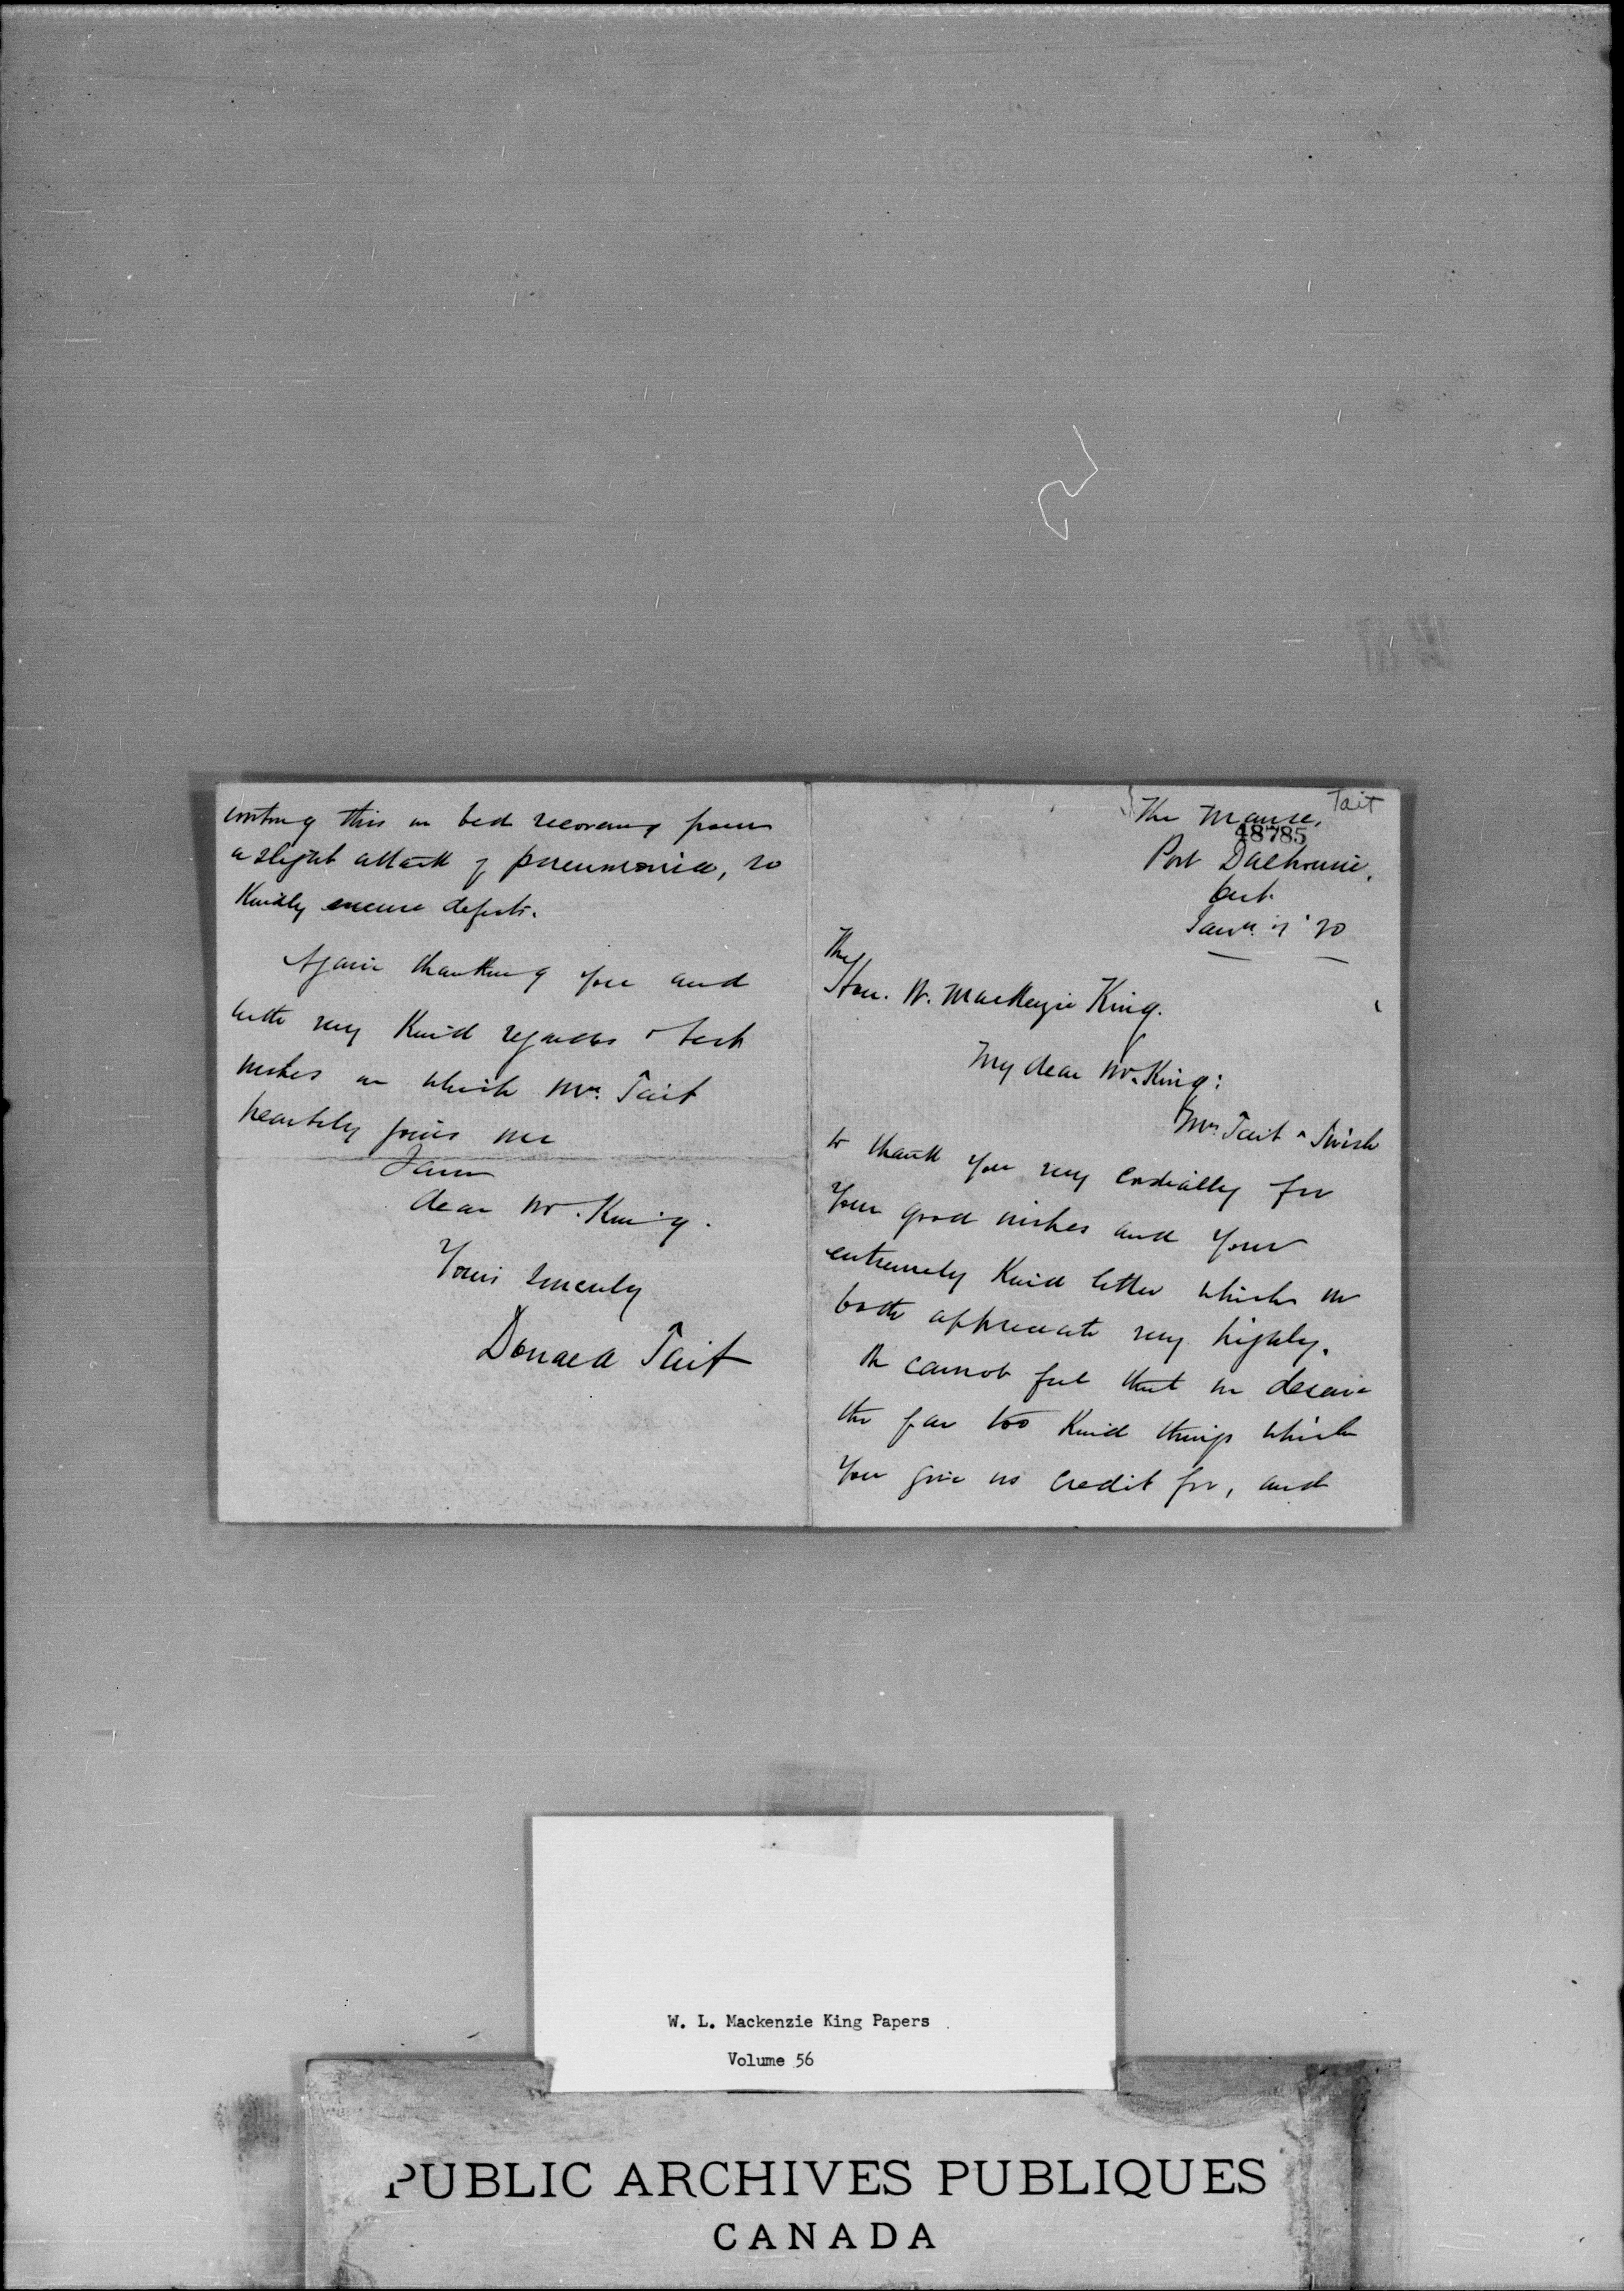 writing this in bed recovering from
a slight attack of pneumonia, so
Kindly excuse defects.
Again thanking you and
with very Kind regards & best
wishes in which Mrs. Tait
heartily joins me
I am
dear Mr. King.
Yours sincerely
Donald Tait
Tait
The Manse,
48785
Port Dalhousie,
Ont.
Jany. '20
The
Hon. W. MacKenzie King.
My dear Mr. King:
Mrs. Tait & I wish
to thank you very cordially for
your good wishes and your
extremely Kind letter which we
both appreciate very highly.
We cannot feel that we deserve
the far too Kind things which
you give us credit for, and
W. L. Mackenzie King Papers
Volume 56
PUBLIC ARCHIVES PUBLIQUES
CANADA